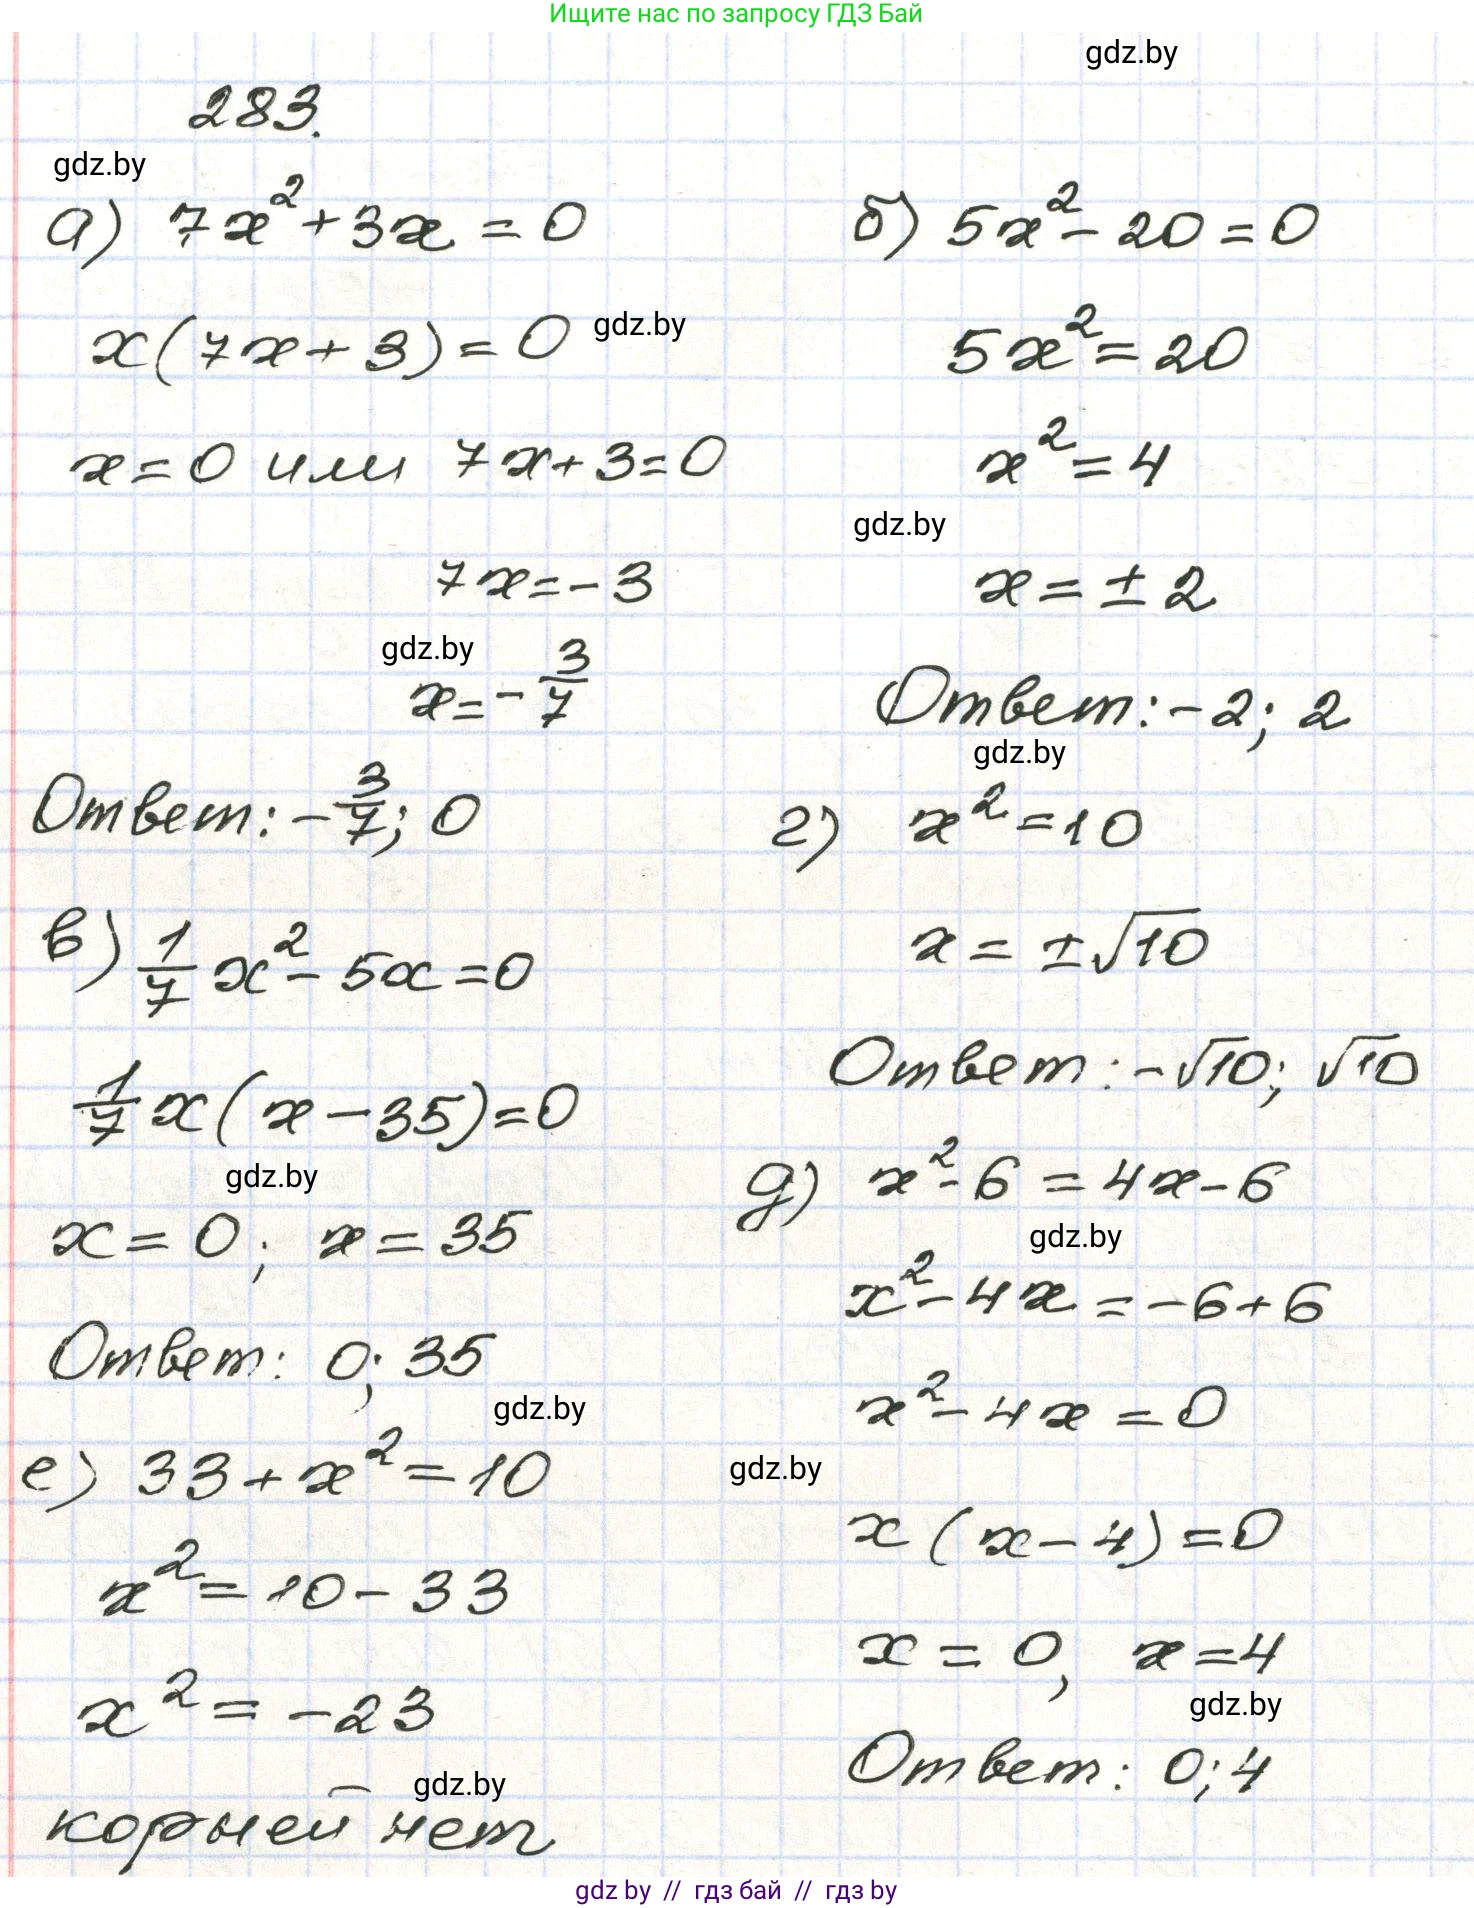 Ищите нас по запросу ГДЗ Бай
gdz.by
283.
gdz.by
а) 7x² + 3x = 0
x(7x + 3) = 0
gdz.by
x = 0 или 7x + 3 = 0
7x = - 3
gdz.by
x = - 3/7
Ответ: - 3/7; 0
б) 5x² - 20 = 0
5x² = 20
x² = 4
gdz.by
x = ± 2
Ответ: -2; 2
gdz.by
в) 1/7 x² - 5x = 0
1/7 x(x - 35) = 0
gdz.by
x = 0; x = 35
Ответ: 0; 35
gdz.by
г) x² = 10
x = ±√10
Ответ: -√10; √10
д) x² - 6 = 4x - 6
gdz.by
x² - 4x = -6 + 6
x² - 4x = 0
gdz.by
x (x - 4) = 0
x = 0, x = 4
gdz.by
Ответ: 0; 4
е) 33 + x² = 10
x² = 10 - 33
x² = -23
gdz.by
корней нет
gdz by // гдз бай // гдз by